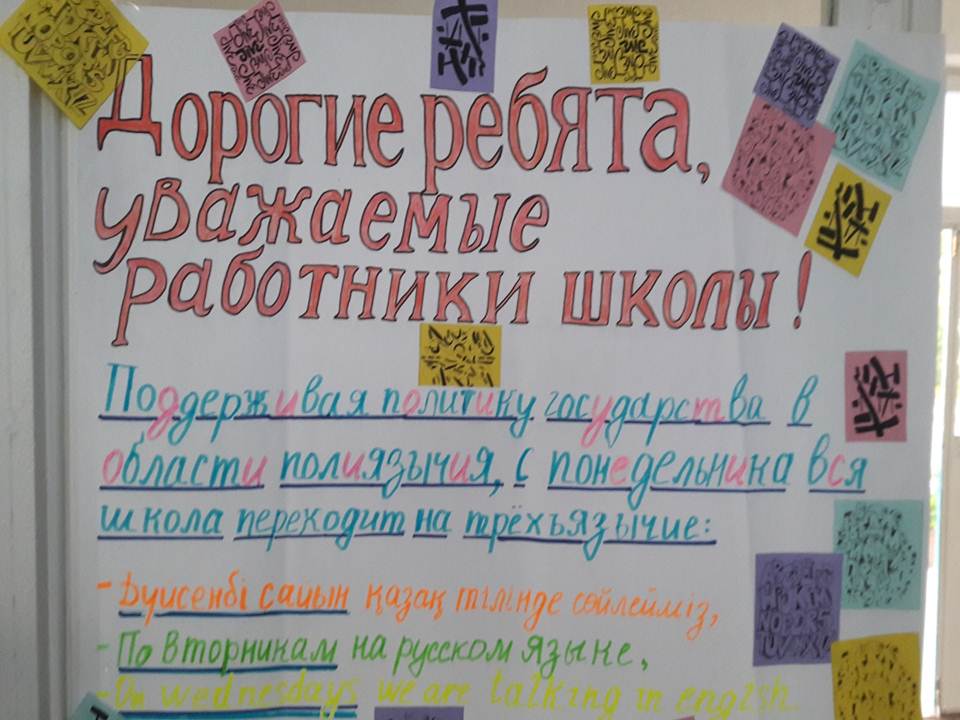 Дорогие ребята,
уважаемые
работники школы!
Поддерживая политику государства в
области полиязычия, с понедельника вся
школа переходит на трёхъязычие:
- Дүйсенбі сайын қазақ тілінде сөйлейміз,
- По вторникам на русском языке,
- On wednesdays we are talking in english